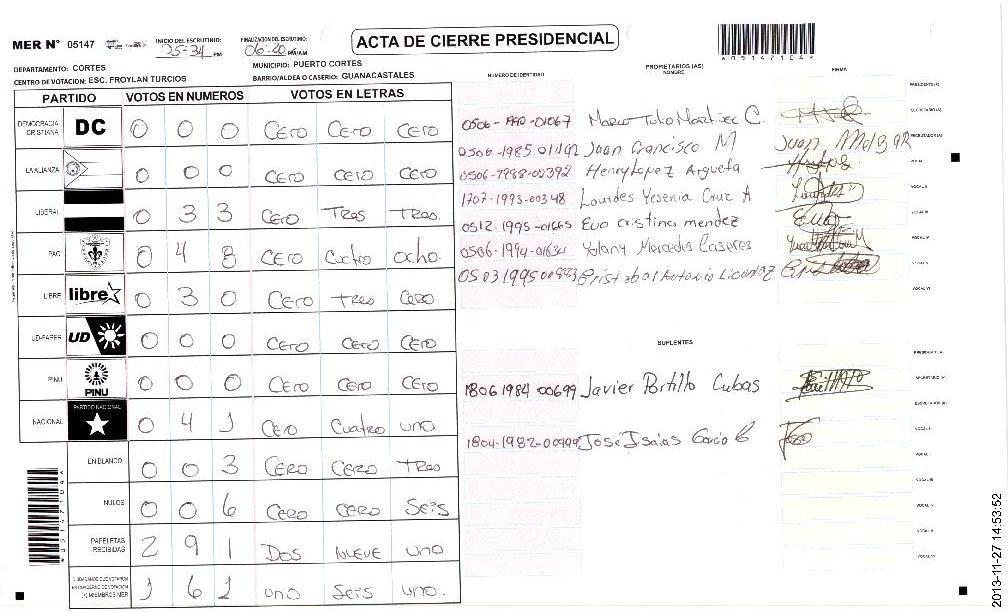 MER N° 05147 INICIO DEL ESCRUTINIO: 05:34 PM FINALIZACIÓN DEL ESCRUTINIO: 06:20 PM/AM ACTA DE CIERRE PRESIDENCIAL
*05147104*
DEPARTAMENTO: CORTES MUNICIPIO: PUERTO CORTES
CENTRO DE VOTACION: ESC. FROYLAN TURCIOS BARRIO/ALDEA O CASERIO: GUANACASTALES
NUMERO DE IDENTIDAD PROPIETARIOS (AS) NOMBRE FIRMA
PARTIDO VOTOS EN NUMEROS VOTOS EN LETRAS
DEMOCRACIA CRISTIANA DC 0 0 0 Cero Cero Cero
LA ALIANZA 0 0 0 Cero Cero Cero
LIBERAL 0 3 3 Cero Tres Tres.
PAC 0 4 8 Cero Cuatro ocho.
LIBRE libre 0 3 0 Cero Tres Cero
UD-FAPER UD 0 0 0 Cero Cero Cero
PINU PINU 0 0 0 Cero Cero Cero
NACIONAL PARTIDO NACIONAL 0 4 1 Cero Cuatro uno
EN BLANCO 0 0 3 Cero Cero Tres
NULOS 0 0 6 Cero Cero Seis
PAPELETAS RECIBIDAS 2 9 1 Dos Nueve uno
CIUDADANOS QUE VOTARON EN CUADERNO DE VOTACION (+) MIEMBROS MER 1 6 1 uno Seis uno.
PRESIDENTE (A)
SECRETARIO (A)
0506- -01067 Marco Tulio Martinez C.
ESCRUTADOR (A)
0506-1985 01492 Juan Francisco M
VOCAL I
0506-1988-02392 Henry Lopez Argueta
VOCAL II
1707-1993-00348 Lourdes Yesenia Cruz A
VOCAL III
0512-1995-01665 Eva cristina mendez
VOCAL IV
0506-1994- Yolany Mercedes Caseres
VOCAL V
0503 1995 Cristobal Antonio
VOCAL VI
SUPLENTES
PRESIDENTE (A)
SECRETARIO (A)
1806 1984 00699 Javier Portillo Cubas
ESCRUTADOR (A)
VOCAL I
1804-1982-00999 Jose Isaias Garcia
VOCAL II
VOCAL III
VOCAL IV
VOCAL V
VOCAL VI
*05147104*
2013-11-27 14:53:52